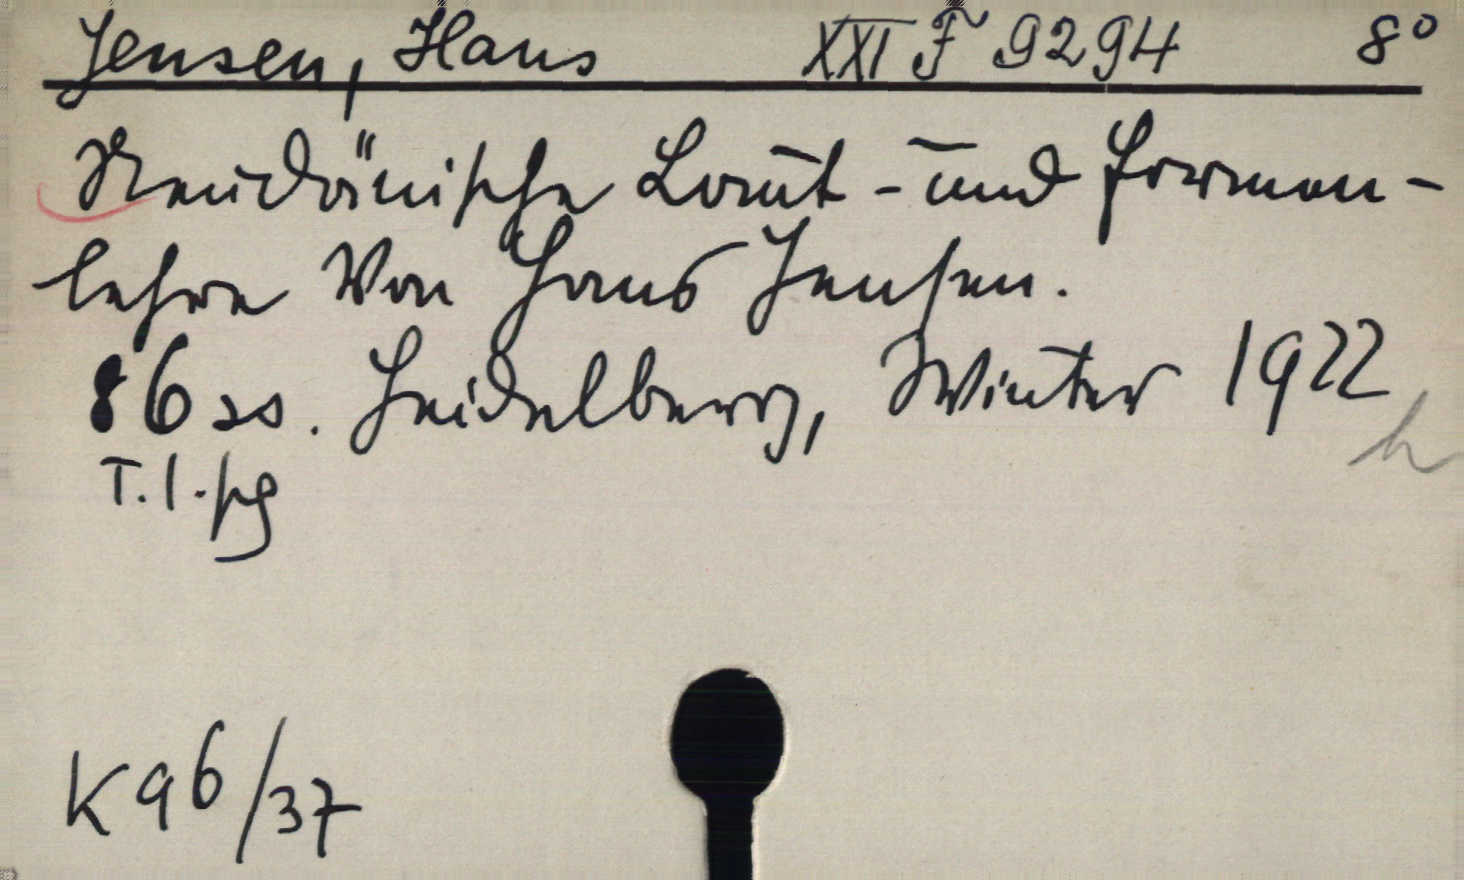 Jensen, Hans XXI F 9294 8°
Neudänische Laut- und Formen-
lehre Von Hans Jensen.
86 ss. Heidelberg, Winter 1922
T. 1.
K 96/37